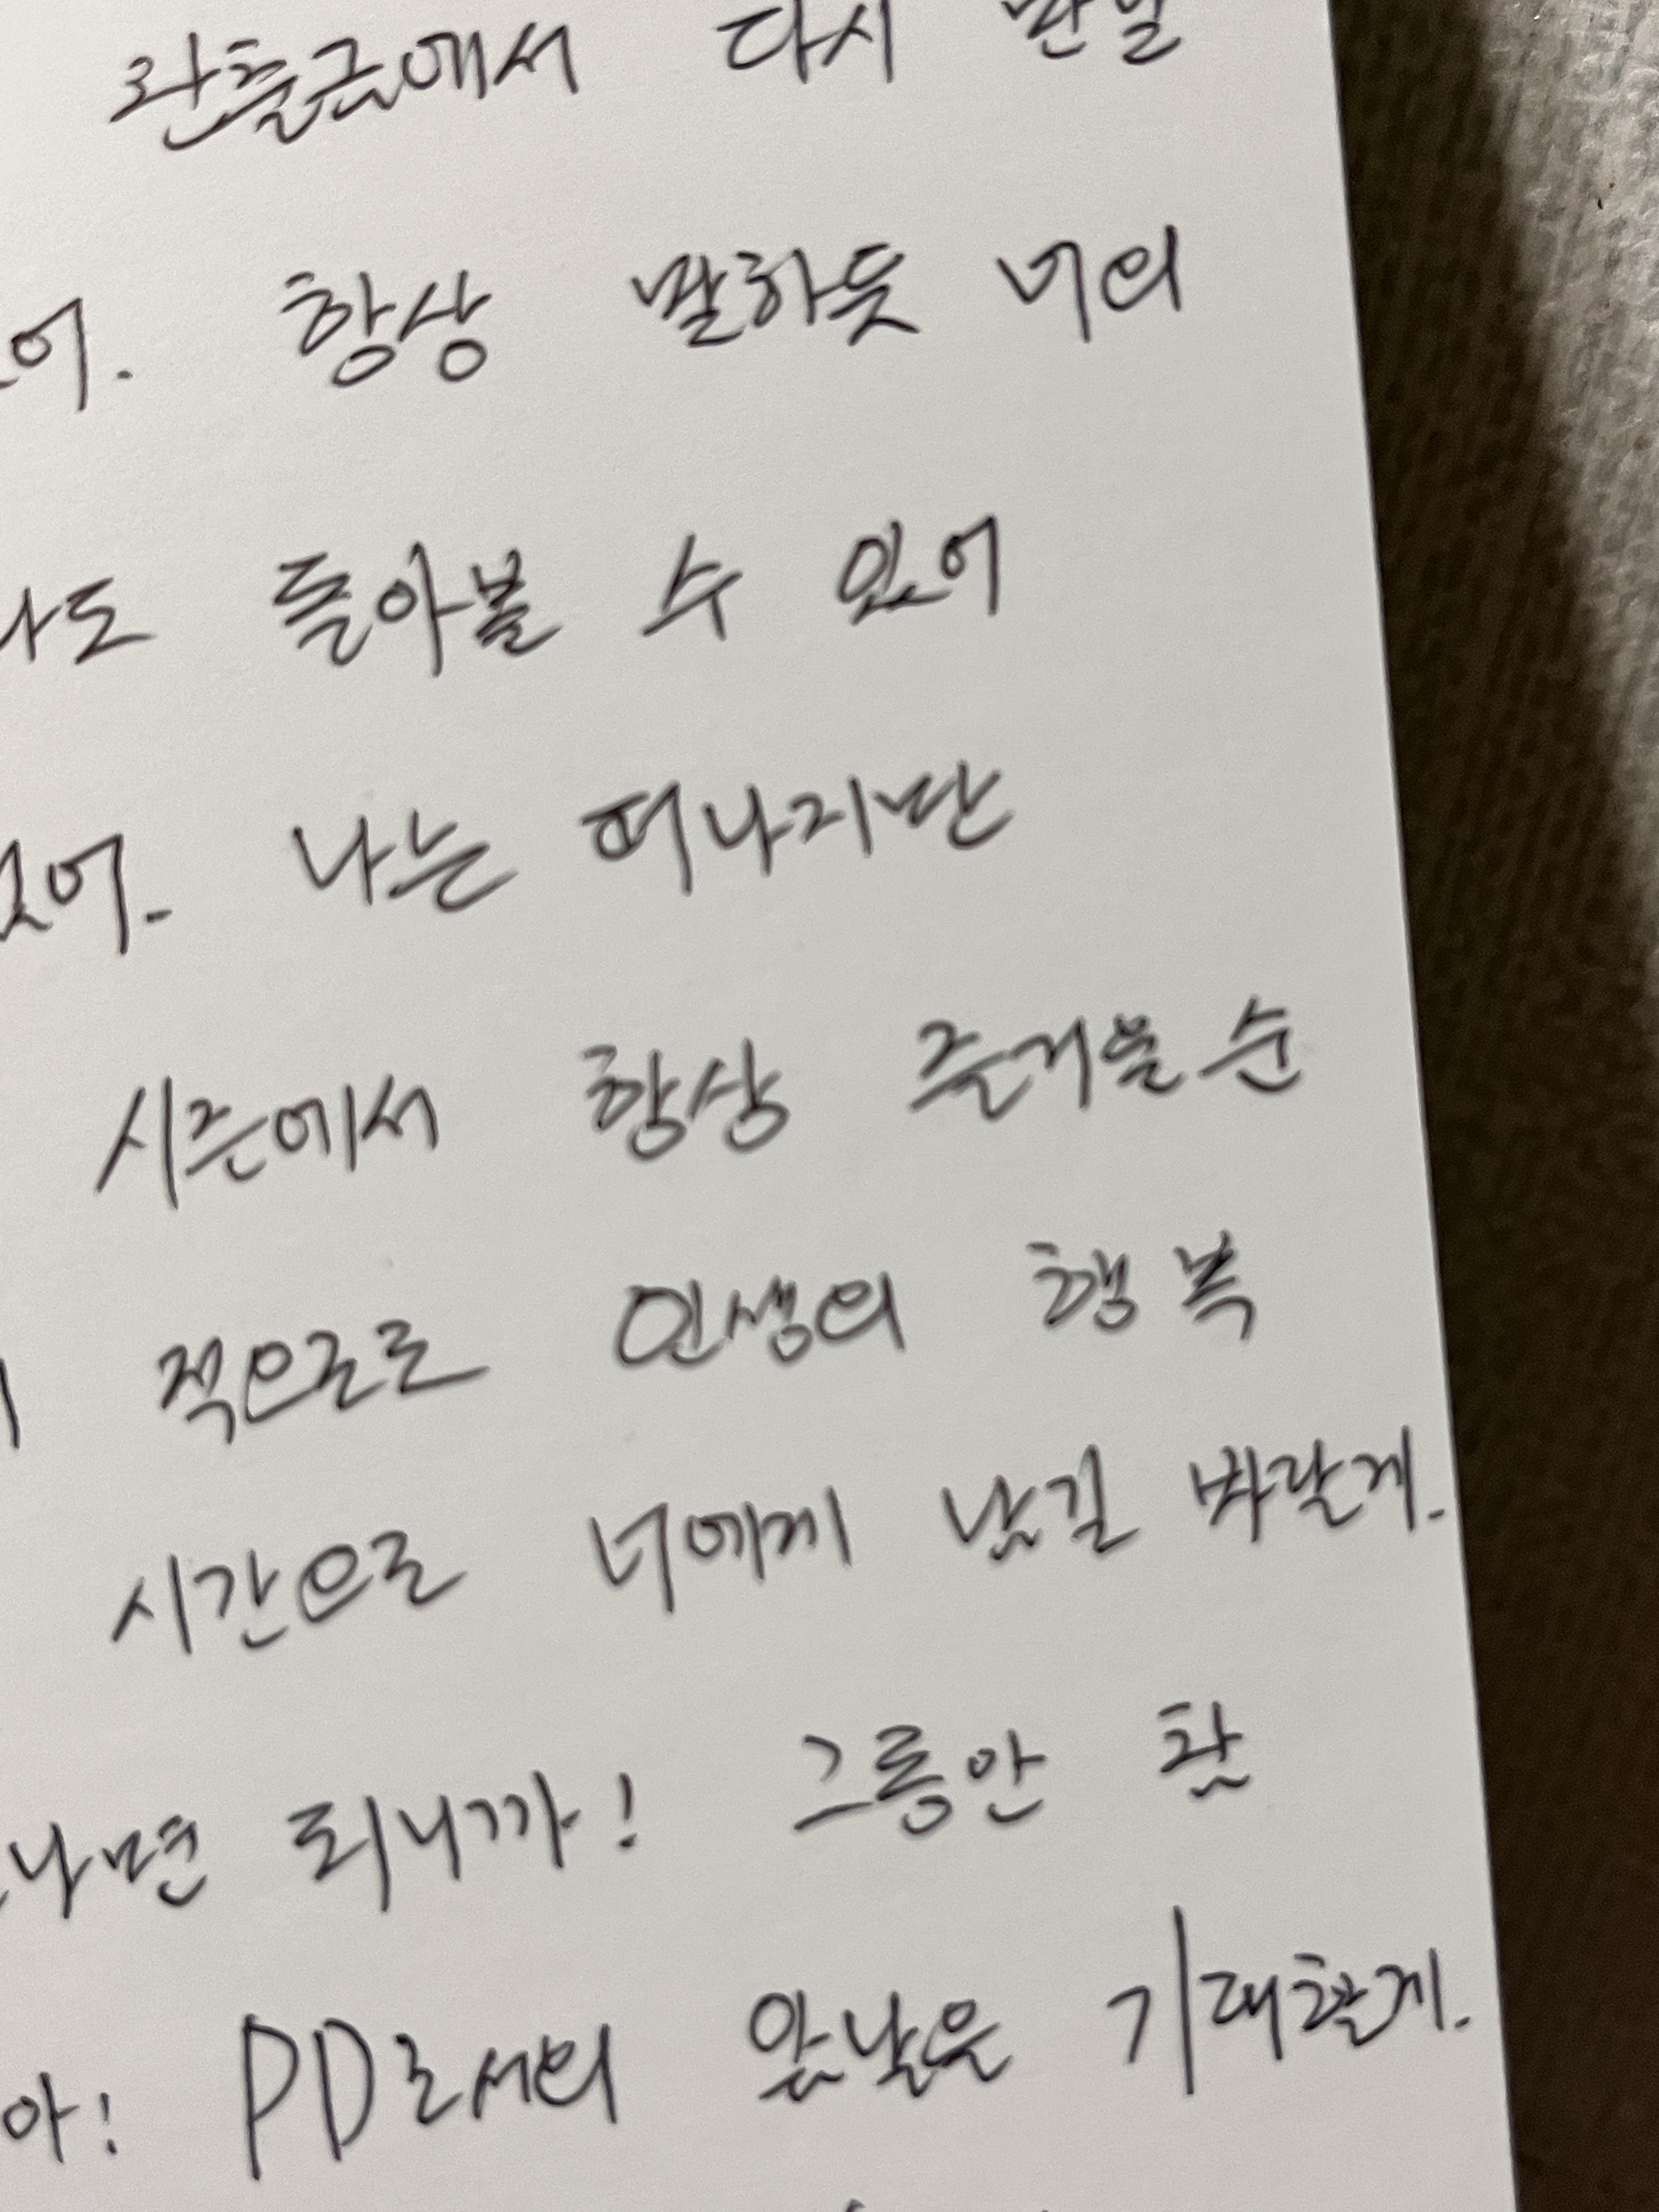 다시
어. 항상 말하듯 너의
도 돌아볼 수 있어
어. 나는 떠나지만
시즌에서 항상 즐거울 순
적으로 인생의 행복
시간으로 너에게 남길 바랄게.
나면 되니까! 그동안 참
아! PD로서의 앞날은 기대할게.